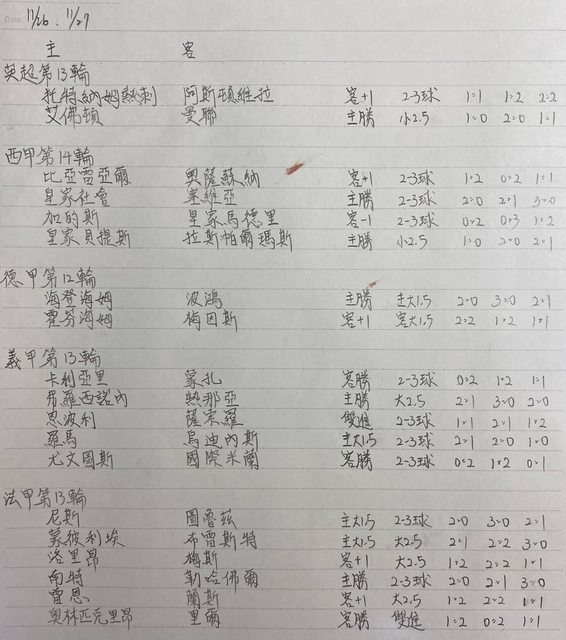 Date 11/26 . 11/27
主 客
英超第13輪
托特納姆熱刺 阿斯頓維拉 客+1 2-3球 1:1 1:2 2:2
艾佛頓 曼聯 主勝 小2.5 1:0 2:0 1:1
西甲第14輪
比亞雷亞爾 奧薩蘇納 客+1 2-3球 1:2 0:2 1:1
皇家社會 塞維亞 主勝 2-3球 2:0 2:1 3:0
加的斯 皇家馬德里 客-1 2-3球 0:2 0:3 1:2
皇家貝提斯 拉斯帕爾瑪斯 主勝 小2.5 1:0 2:0 2:1
德甲第12輪
海登海姆 波鴻 主勝 主大1.5 2:0 3:0 2:1
霍芬海姆 梅因斯 客+1 客大1.5 2:2 1:2 1:1
義甲第13輪
卡利亞里 蒙扎 客勝 2-3球 0:2 1:2 1:1
弗羅西諾內 熱那亞 主勝 大2.5 2:1 3:0 2:0
恩波利 薩索羅 雙進 2-3球 1:1 2:1 1:2
羅馬 烏迪內斯 主大1.5 2-3球 2:1 2:0 1:0
尤文圖斯 國際米蘭 客勝 2-3球 0:2 1:2 0:1
法甲第13輪
尼斯 圖魯茲 主大1.5 2-3球 2:0 3:0 2:1
蒙彼利埃 布雷斯特 主大1.5 大2.5 2:1 2:2 3:0
洛里昂 梅斯 客+1 大2.5 1:2 2:2 1:1
南特 勒哈佛爾 主勝 2-3球 2:0 2:1 3:0
雷恩 蘭斯 客+1 大2.5 1:2 2:2 1:1
奧林匹克里昂 里爾 客勝 雙進 1:2 0:2 1:1